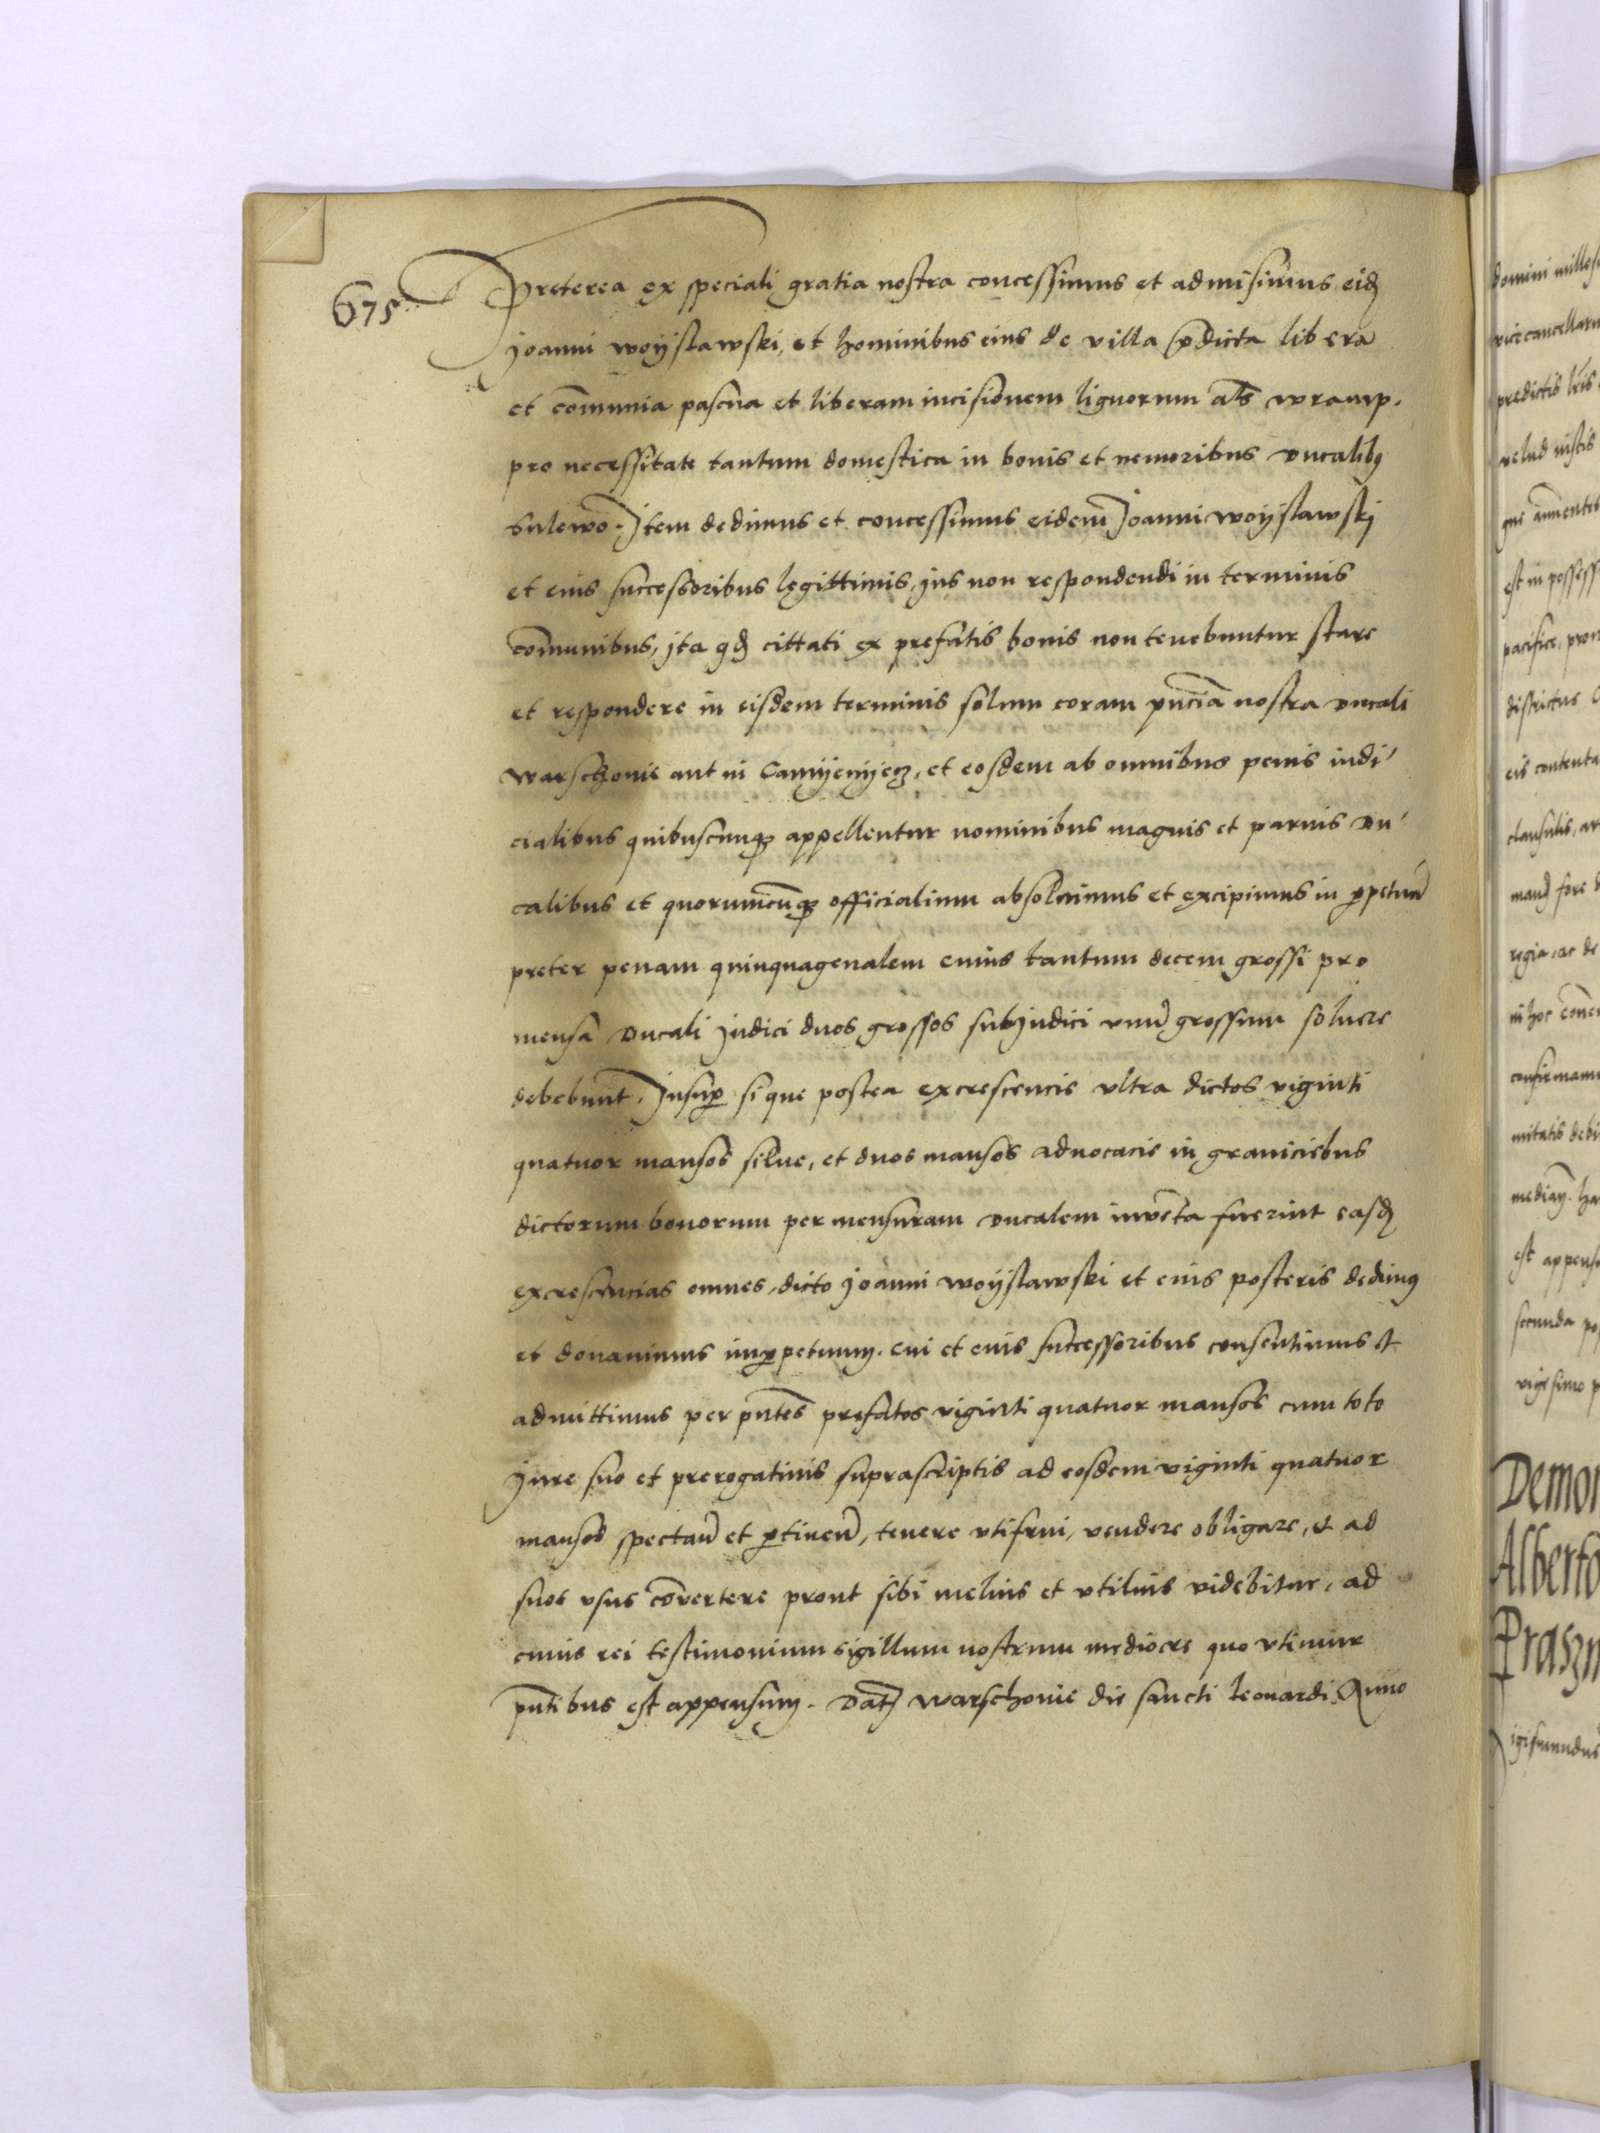 675
Preterea ex speciali gratia nostra concessimus et admisimus eid
Joanni woyslawski, et hominibus eius de villa pdicta libera
et comunia pascua et liberam incisionem lignorum als wramp.
pro necessitate tantum domestica in bonis et nemoribus Ducalibq
Sulewo. Item dedimus et concessimus eidem Joanni woyslawskj
et eius successoribus legittimis, jus non respondendi in terminis
comunibus, jta qd cittati ex prefatis bonis non tenebuntur stare
et respondere in eisdem terminis solum coram pncia nostra Ducali
warschouie aut in Camyenyecz, et eosdem ab omnibus penis iudi
cialibus quibuscunq appellentur nominibus magnis et paruis Du
calibus et quorumcunq officialium absoluimus et excipimus in ppetuu
preter penam quinquagenalem cuius tantum decem grossi pro
mensa Ducali Judici duos grossos subjudici vnu grossum soluere
debebunt. Insup si que postea excrescencie vltra dictos viginti
quatuor mansos silue, et duos mansos aduocacie in graniciebus
dictorum bonorum per mensuram Ducalem inuenta fuerint easd
excrescencias omnes, dicto Joanni woyslawski et eius posteris dedimq
et donauimus inppetuum. Cui et eius successoribus consentimus et
admittimus per pntes prefatos viginti quatuor mansos cum toto
Jure suo et prerogatiuis suprascriptis ad eosdem viginti quatuor
mansos spectan et ptinen, tenere vtifrui, vendere obligare, et ad
suos vsus couertere prout sibi melius et vtilius videbitur, ad
cuius rei testimonium sigillum nostrum mediocre quo vtimur
pntibus est appensum. Dat warschouie die sancti leonardi Anno
domini milles
vicecancellari
predictis lris
velud iustis
est in possess
pacifice, pron
districtus C
eis contenta
clausulis, ar
mand fore
regia, ac de
in hoc
confirmam
mitatis debi
est appens
secunda po
vigesimo p
Demon
Alberto
Prasn
igismundus